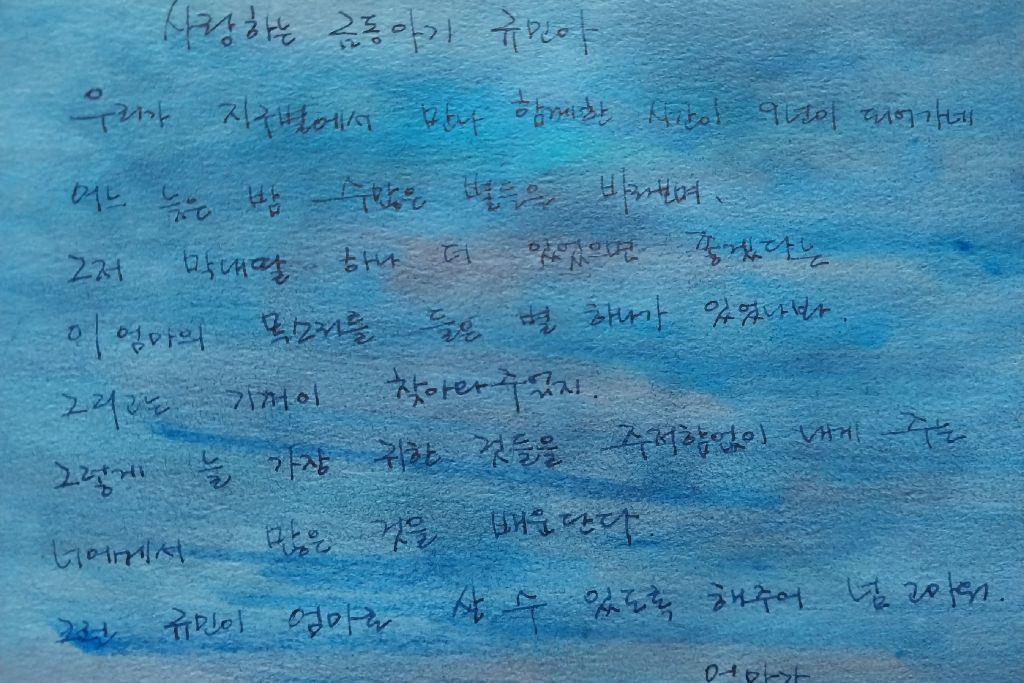 사랑하는 금동아기 규민아
우리가 지구별에서 만나 함께한 시간이 9년이 되어가네
어느 늦은 밤 수많은 별들을 바라보며,
그저 막내딸 하나 더 있었으면 좋겠다는
이 엄마의 목소리를 들은 별 하나가 있었나봐.
그리고는 기꺼이 찾아와주었지.
그렇게 늘 가장 귀한 것들을 주저함없이 내게 주는
너에게서 많은 것을 배운단다.
그런 규민이 엄마로 살 수 있도록 해주어 넘 고마워.
엄마가